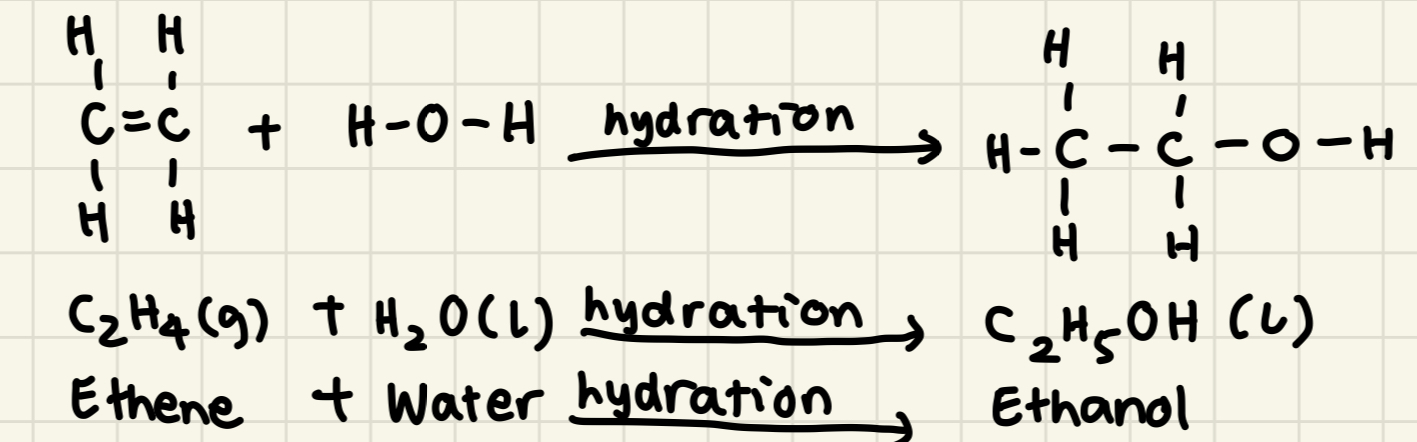 H H H H
C=C + H-O-H hydration → H-C-C-O-H
H H H H
C₂H₄(g) + H₂O(l) hydration → C₂H₅OH (l)
Ethene + Water hydration → Ethanol